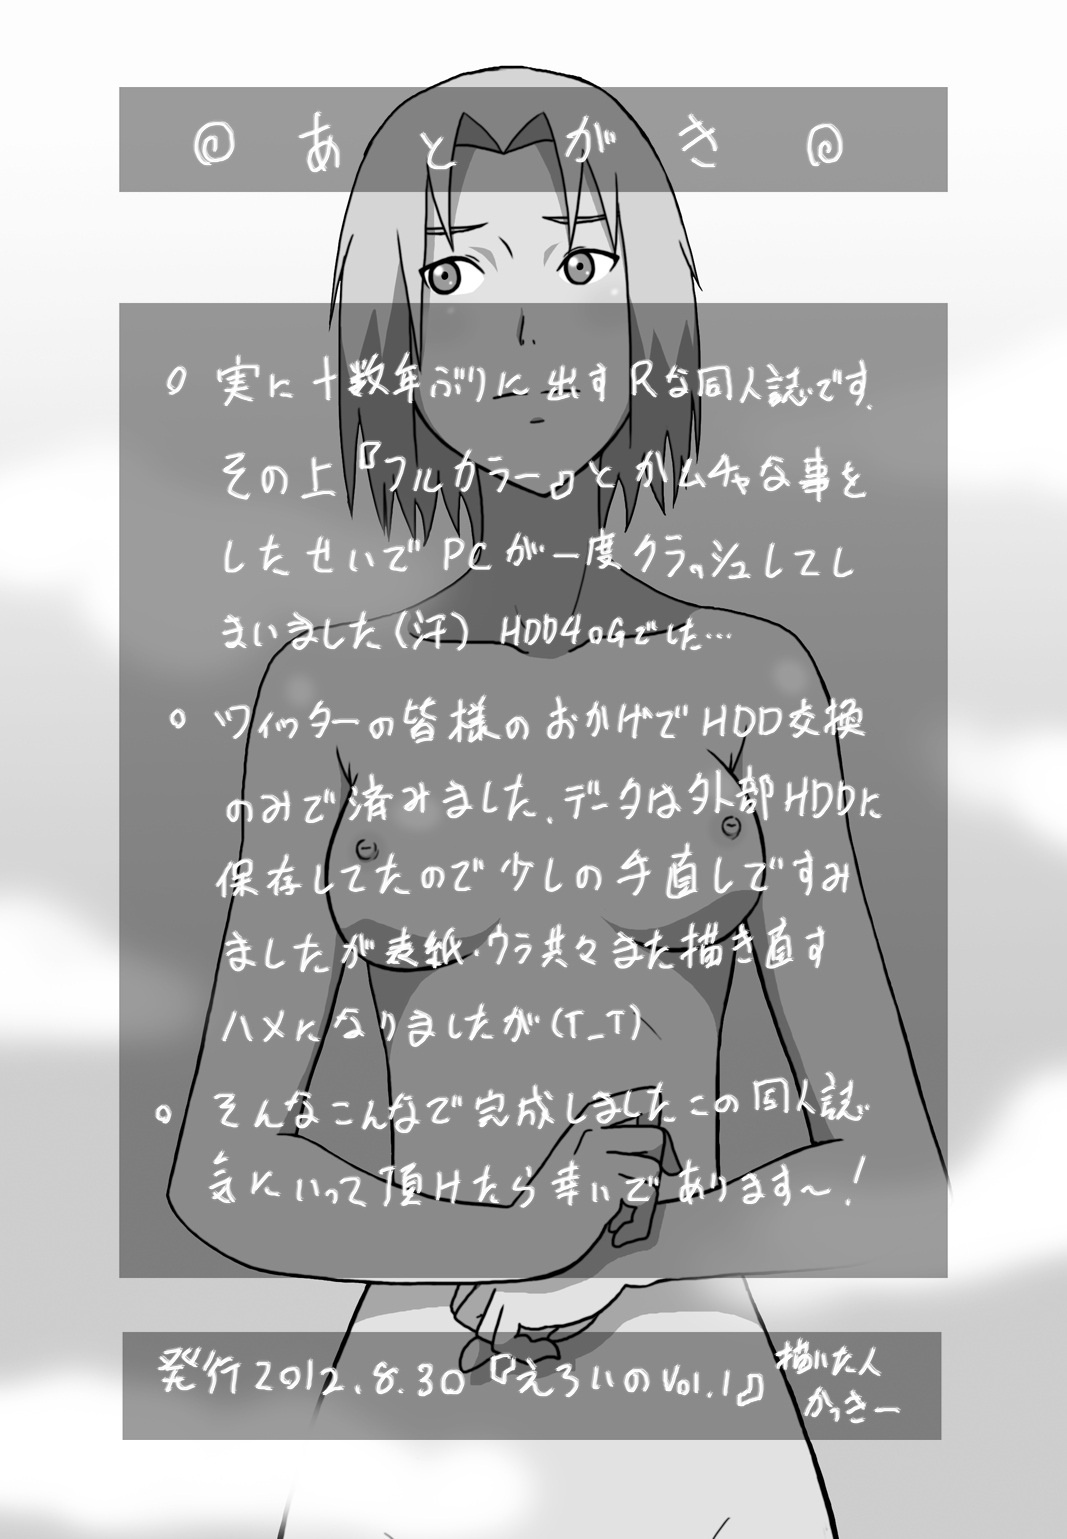 @あとがき@
○実に十数年ぶりに出すRな同人誌です.
その上『フルカラー』とかムチャな事を
したせいでPCが一度クラッシュしてし
まいました(汗) HDD40Gでした…
○ツィッターの皆様のおかげでHDD交換
のみで済みました.データは外部HDDに
保存してたので少しの手直しですみ
ましたが表紙・ウラ共々また描き直す
ハメになりましたが(T_T)
○そんなこんなで完成しましたこの同人誌
気にいって頂けたら幸いであります〜!
発行2012.8.30『えろいのVol.1』
描いた人
かっきー